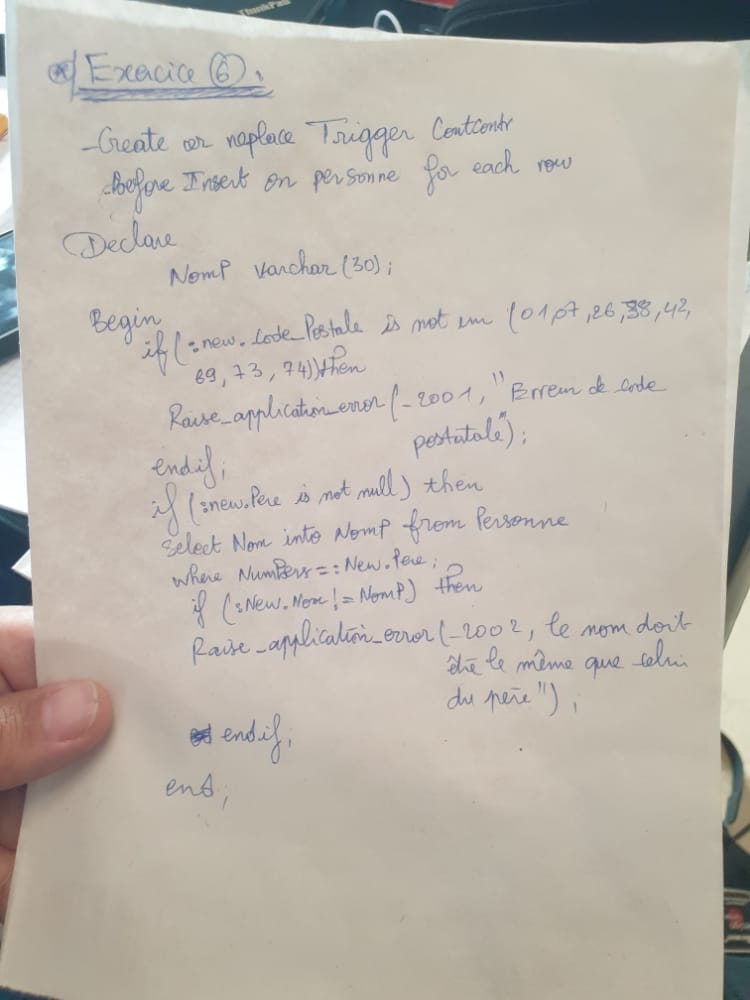 ThinkPad
*) Exercice 6.
-Create or replace Trigger Contcontr
-Before Insert on personne for each row
Declare
NomP varchar(30);
Begin
if(:new.Code_Postale is not in (01,07,26,38,42,
69,73,74))then
Raise_application_error(-2001,"Erreur de code
postatale");
endif;
if(:new.Pere is not null) then
select Nom into NomP from Personne
where NumPers=:New.Pere;
if (:New.Nom!=NomP) then
Raise_application_error(-2002, le nom doit
être le même que celui
du père");
endif;
end;